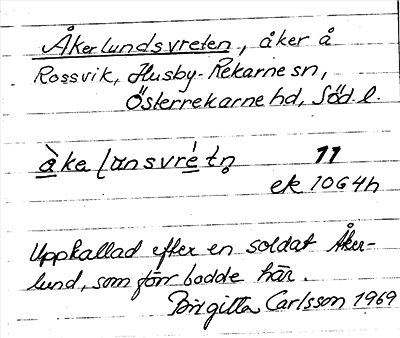 Åkerlundsvreten, åker å
Rossvik, Husby-Rekarne sn,
Österrekarne hd, Söd. l.
11
ek 10G4h
Uppkallad efter en soldat Åker-
lund, som förr bodde här.
Birgitta Carlsson 1969